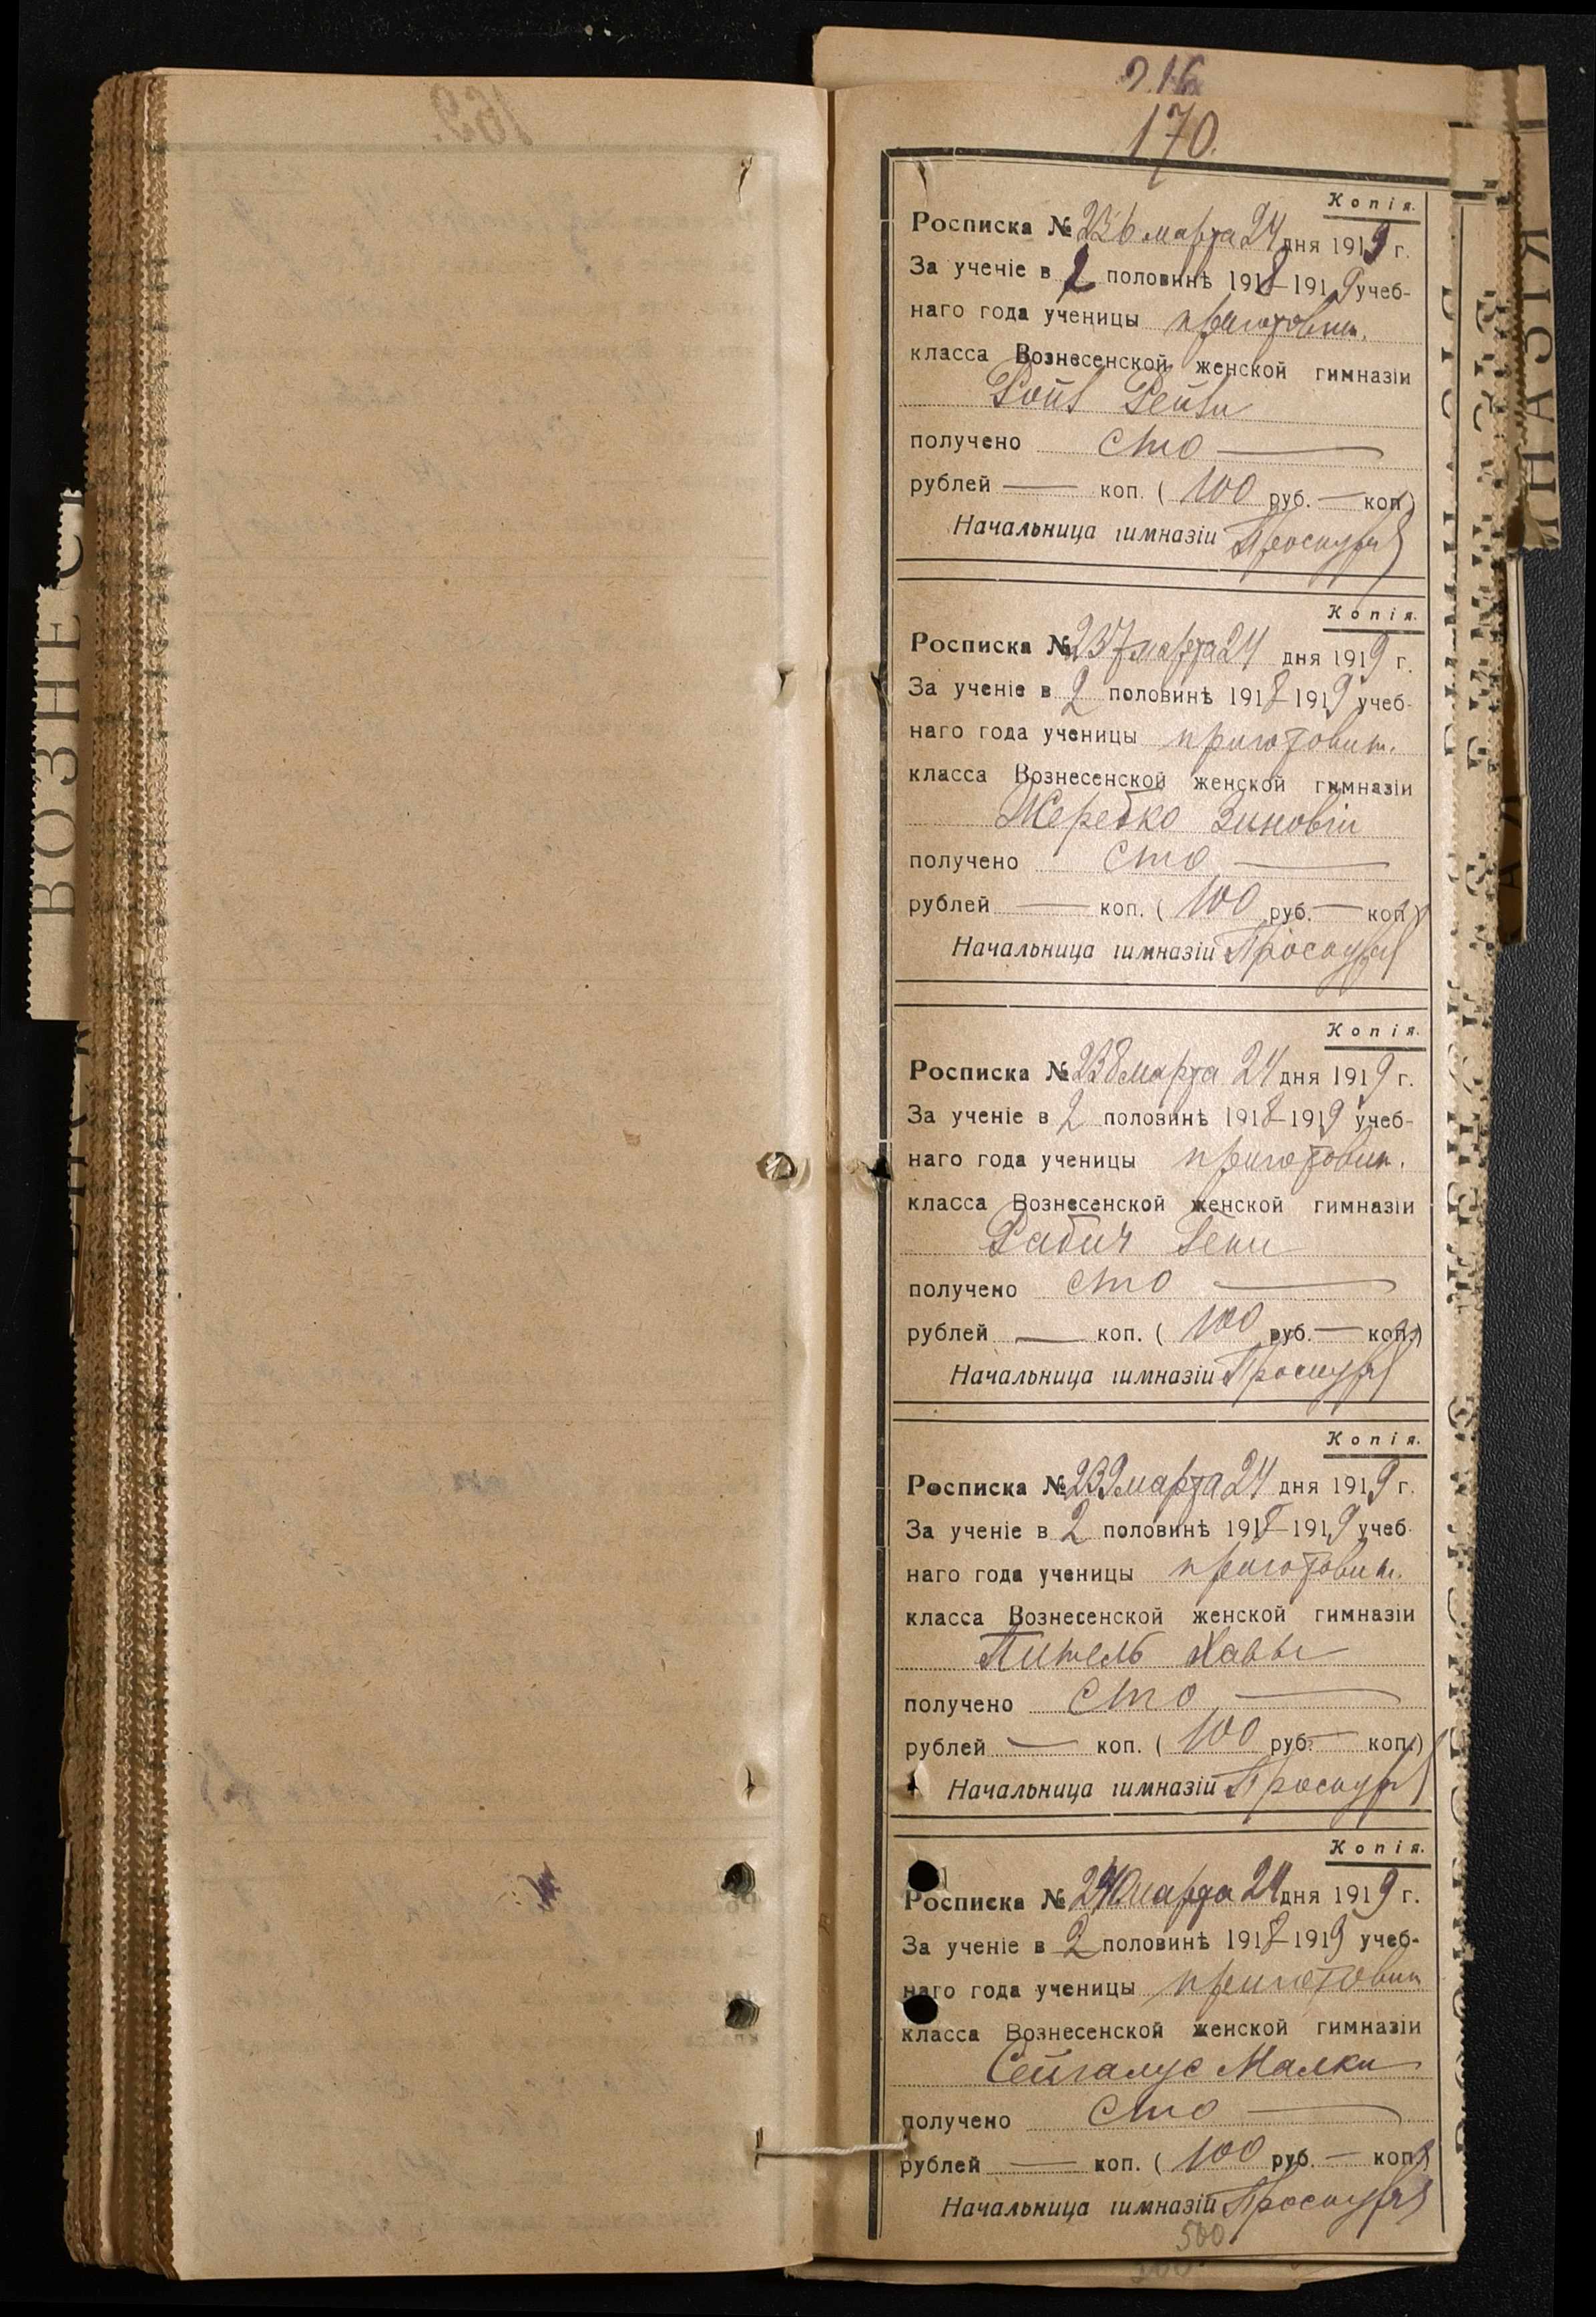 170.
Копія.
Росписка № 236 марта 24 дня 1919 г.
За ученіе в 2 половинѣ 1918–1919 учеб-
наго года ученицы приготовит.
класса Вознесенской женской гимназіи
получено сто —
рублей — коп. ( 100 руб. — коп.)
Начальница гимназіи Проскур
Копія.
Росписка № 237 марта 24 дня 1919 г.
За ученіе в 2 половинѣ 1918–1919 учеб-
наго года ученицы приготовит.
класса Вознесенской женской гимназіи
Жеребко Зиновіи
получено сто —
рублей — коп. ( 100 руб. — коп.)
Начальница гимназіи Проскур
Копія.
Росписка № 238 марта 24 дня 1919 г.
За ученіе в 2 половинѣ 1918–1919 учеб-
наго года ученицы приготовит.
класса Вознесенской женской гимназіи
Рабич Гени
получено сто —
рублей — коп. ( 100 руб. — коп.)
Начальница гимназіи Проскур
Копія.
Росписка № 239 марта 24 дня 1919 г.
За ученіе в 2 половинѣ 1918–1919 учеб-
наго года ученицы приготовит.
класса Вознесенской женской гимназіи
Питель Хавы
получено сто —
рублей — коп. ( 100 руб. — коп.)
Начальница гимназіи Проскур
Копія.
Росписка № 240 марта 24 дня 1919 г.
За ученіе в 2 половинѣ 1918–1919 учеб-
наго года ученицы приготовит
класса Вознесенской женской гимназіи
Сейгалус Малки
получено сто —
рублей — коп. ( 100 руб. — коп.)
Начальница гимназіи Проскур
500
ВОЗНЕС